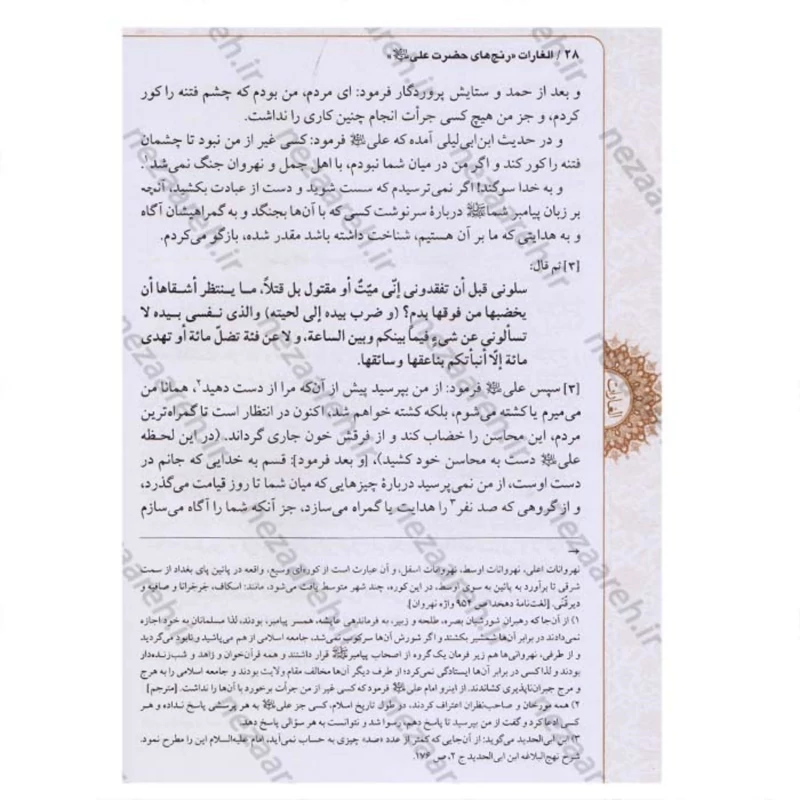 ۲۸ / الغارات «رنج‌های حضرت علی ﷷ»
و بعد از حمد و ستایش پروردگار فرمود: ای مردم، من بودم که چشم فتنه را کور
کردم، و جز من هیچ کسی جرأت انجام چنین کاری را نداشت.
و در حدیث ابن‌ابی‌لیلی آمده که علی فرمود: کسی غیر از من نبود تا چشمان
فتنه را کور کند و اگر من در میان شما نبودم، با اهل جمل و نهروان جنگ نمی‌شد۱.
و به خدا سوگند! اگر نمی‌ترسیدم که سست شوید و دست از عبادت بکشید، آنچه
بر زبان پیامبر شما ﷺ دربارهٔ سرنوشت کسی که با آن‌ها بجنگد و به گمراهیشان آگاه
و به هدایتی که ما بر آن هستیم، شناخت داشته باشد مقدر شده، بازگو می‌کردم.
[۳] ثم قال:
سلونی قبل أن تفقدونی إنّی میّتٌ أو مقتول بل قتلاً، ما ینتظر أشقاها أن
یخضبها من فوقها بدم؟ (و ضرب بیده إلی لحیته) والذی نفسی بیده لا
تسألونی عن شیءٍ فیما بینکم وبین الساعة، و لا عن فئة تضلّ مائة أو تهدی
مائة إلّا أنبأتکم بناعقها وسائقها.
[۳] سپس علی فرمود: از من بپرسید پیش از آن‌که مرا از دست دهید۲، همانا من
می‌میرم یا کشته می‌شوم، بلکه کشته خواهم شد، اکنون در انتظار است تا گمراه‌ترین
مردم، این محاسن را خضاب کند و از فرقش خون جاری گرداند. (در این لحظه
علی دست به محاسن خود کشید)، [و بعد فرمود]: قسم به خدایی که جانم در
دست اوست، از من نمی‌پرسید دربارهٔ چیزهایی که میان شما تا روز قیامت می‌گذرد،
و از گروهی که صد نفر۳ را هدایت یا گمراه می‌سازد، جز آنکه شما را آگاه می‌سازم
→
نهروانات اعلی، نهروانات اوسط، نهروانات اسفل، و آن عبارت است از کوره‌ای وسیع، واقعه در پائین پای بغداد از سمت
شرقی تا برآورد به پائین به سوی اوسط، در این کوره، چند شهر متوسط یافت می‌شود، مانند: اسکاف، جرجرانا و صافیه و
دیرقُنّی. [لغت‌نامهٔ دهخدا ص ۹۵۴ واژه نهروان].
۱) از آن‌جا که رهبران شورشیان بصره، طلحه و زبیر، به فرماندهی عایشه، همسر پیامبر، بودند، لذا مسلمانان به خود اجازه
نمی‌دادند در برابر آن‌ها شمشیر بکشند و اگر شورش آن‌ها سرکوب نمی‌شد، جامعه اسلامی از هم می‌پاشید و نابود می‌گردید
و از طرفی، نهروانی‌ها هم زیر فرمان یک گروه از اصحاب پیامبر ﷺ قرار داشتند و همه قرآن‌خوان و زاهد و شب‌زنده‌دار
بودند و لذا کسی در برابر آن‌ها ایستادگی نمی‌کرد؛ از طرف دیگر آن‌ها مخالف مقام ولایت بودند و جامعه اسلامی را به هرج
و مرج جبران‌ناپذیری کشاندند. از اینرو امام علی فرمود که کسی غیر از من جرأت برخورد با آن‌ها را نداشت. [مترجم]
۲) همه مورخان و صاحب‌نظران اعتراف کردند، در طول تاریخ اسلام، کسی جز علی به هر پرسشی پاسخ نداده و هر
کسی ادعا کرد و گفت از من بپرسید تا پاسخ دهم، رسوا شد و نتوانست به هر سؤالی پاسخ دهد.
۳) ابن ابی‌الحدید می‌گوید: از آن‌جایی که کمتر از عدد «صد» چیزی به حساب نمی‌آید، امام علیه‌السلام این را مطرح نمود.
شرح نهج‌البلاغه ابن ابی‌الحدید ج ۲، ص ۱۷۶.
الغارات
nezaareh.ir